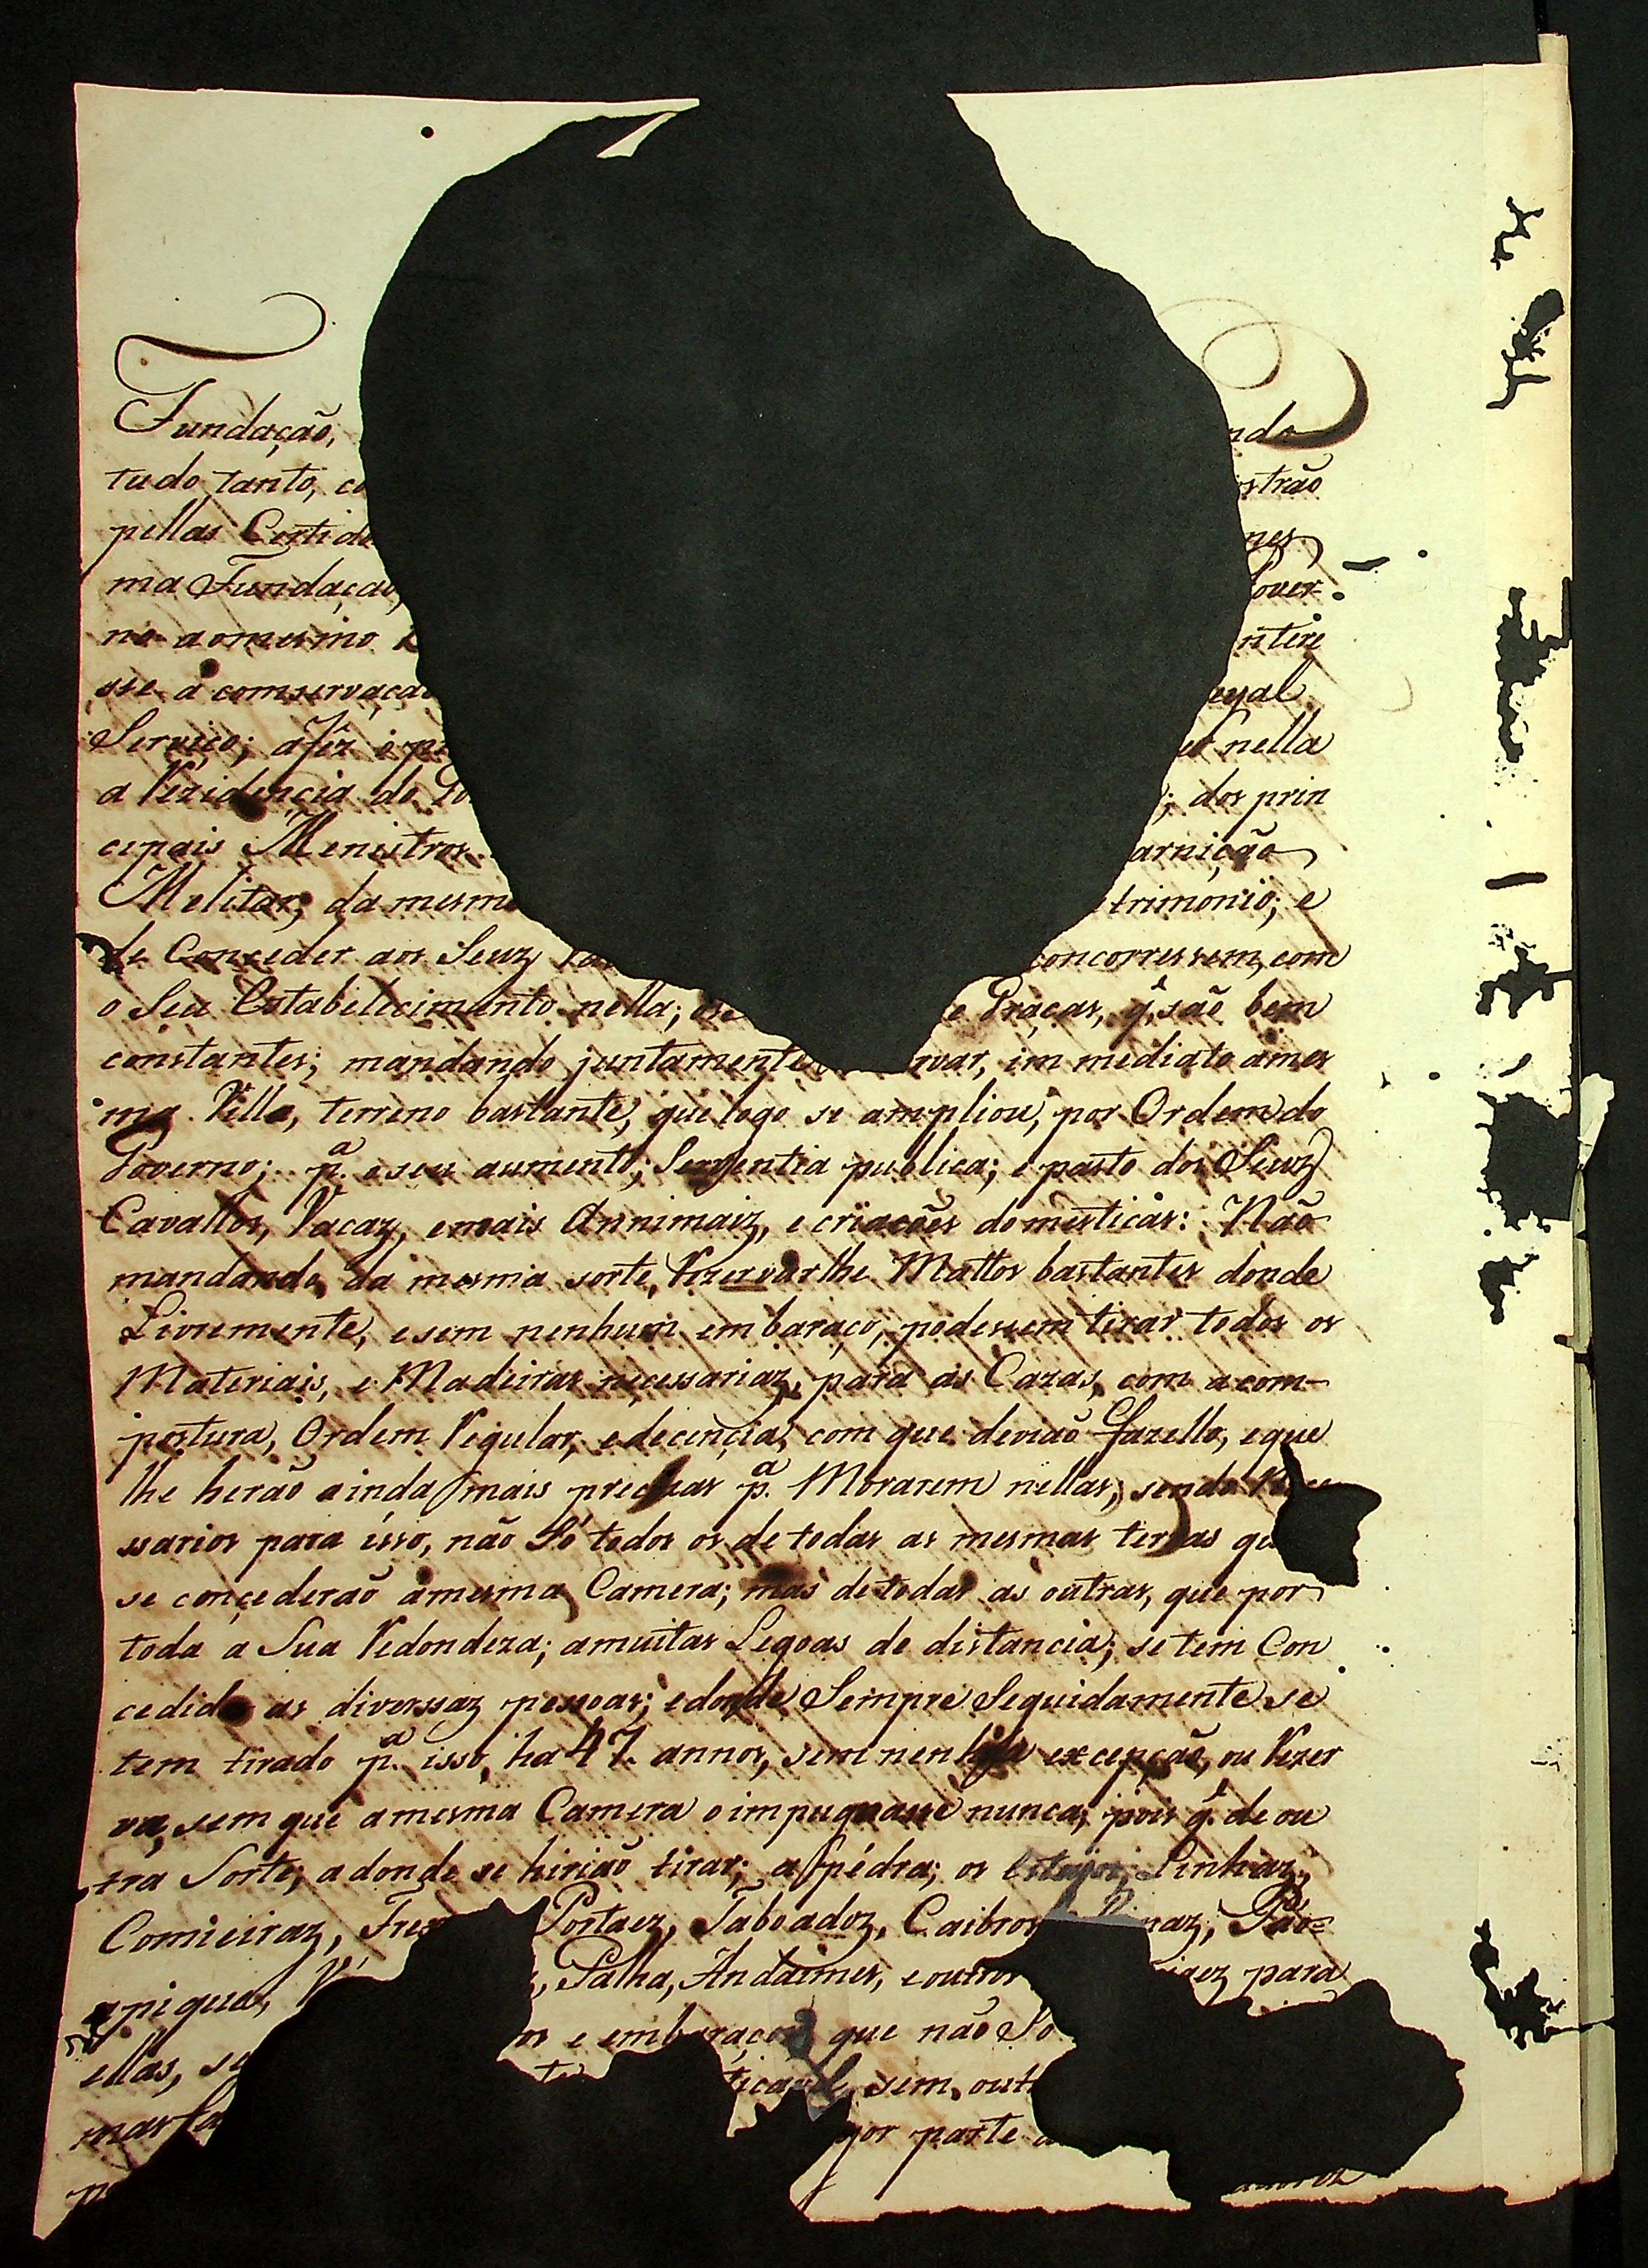 Fundação, ndo
tudo tanto, co strão
pellas Certidо mes
ma Fundação, Gover
no ao mesmo ntere
sse â comservaçaõ egal
Serviço; afêz e pe nella
a Rezidençia do Go ; dos prin
cipais Menistros arnição
Melitar; da mesma trimonio; e
de Conçeder aos Seuz concorressem, com
o Seu Estabelecimento nella; os e Praças, q̃ são bem
constantes; mandando juntamente rvar, immediato ámes
ma Villa, terreno bastante, que logo se ampliou, por Ordem do
Governo; p.ª o seu aumento; Serventia publica; e pasto dos Seuz
Cavallos, Vacaz, e mais Annimaiz, e criações domesticas: Não
mandando, da mesma sorte, Rezervarlhe Mattos bastantes donde
Livremente, e sem nenhum embaraço, podessem tirar todos os
Materiais, e Madeiras neçessariaz, para as Cazas, com a com-
postura, Ordem Regular, e decençia, com que devião fazello, e que
lhe herão ainda mais precizas p.ª Morarem nellas, sendo
ssarios para isso, não Só todos os de todas as mesmas terras qu
se conçederão ámesma Camera; mas de todas as outras, que por
toda a Sua Redondeza; amuitas Legoas de distancia; se tem Con
cedido as diverssaz pessoas; e donde Sempre Seguidamente se
tem tirado p.ª isso, ha 47. annos, sem nenhũa excepção, ou Rezer
va, sem que a mesma Camera o impugnasse nunca; pois q̃ de ou
tra Sorte; adonde se hirião tirar; a pédra; os Esteyos; Linhaz;
Comieiraz, Fre Portaez, Taboadoz, Caibros Ripaz; Páo=
apiquas, Palha, Andaimes, e outros para
ellas, se os e embaraços que não Só
mas ticando, sem, out
p por parte a